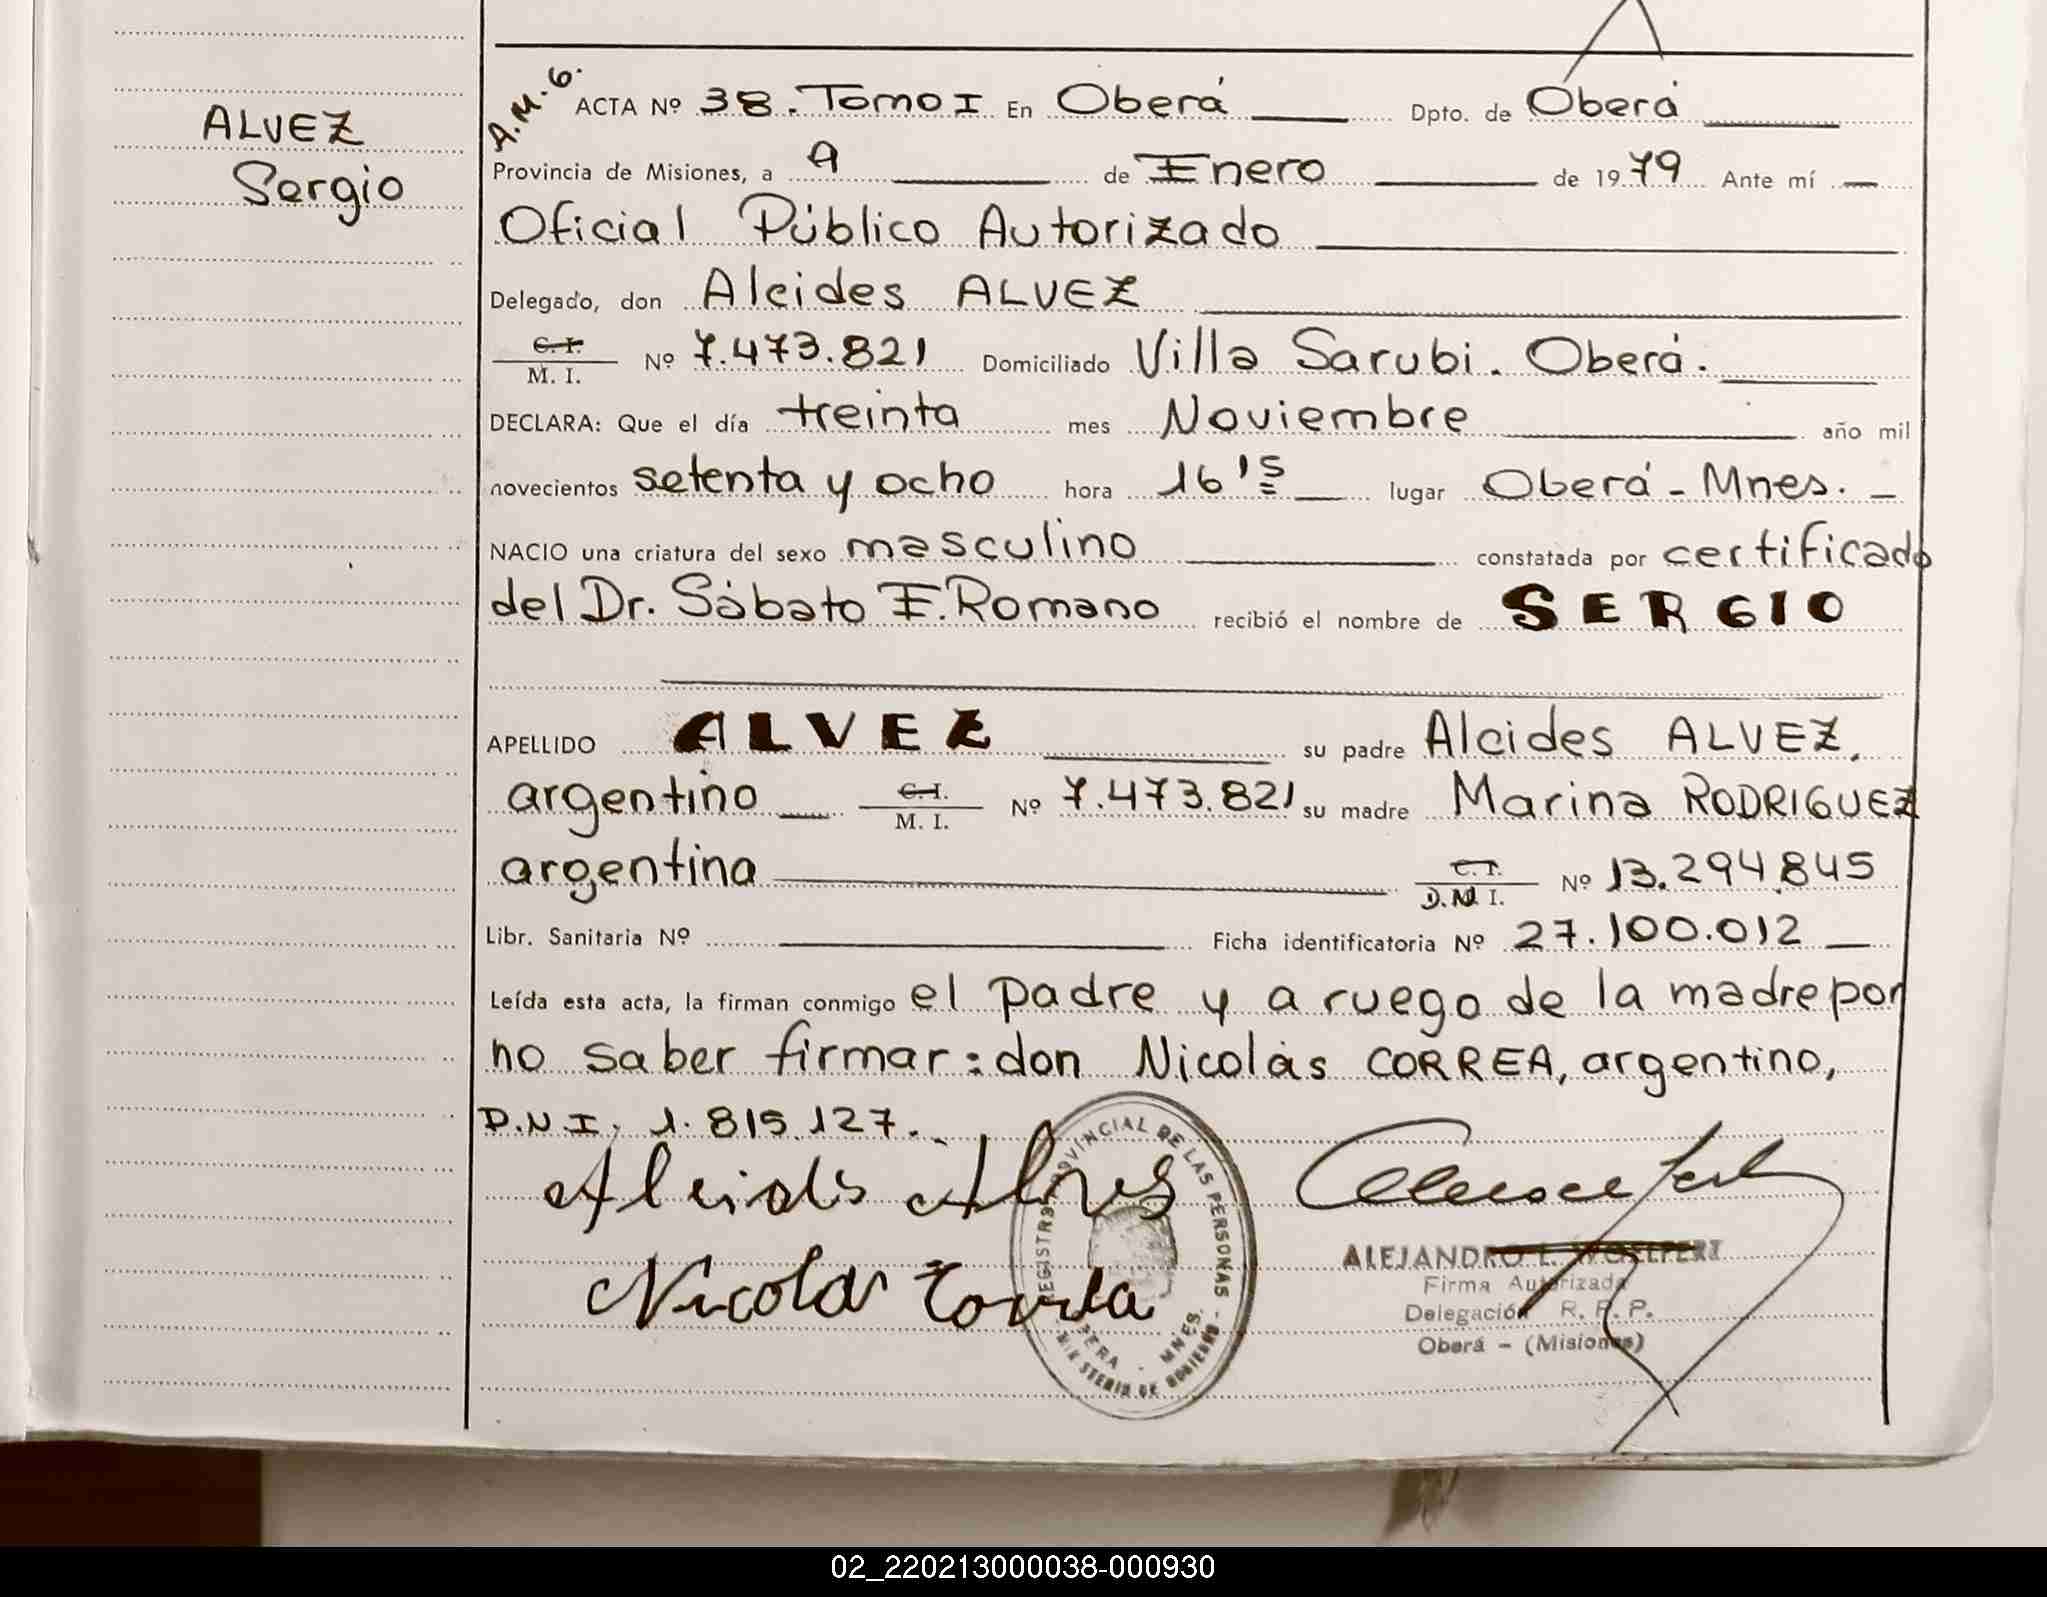 ALVEZ
Sergio
A.M.G.
ACTA Nº 38. Tomo I En Oberá Dpto. de Oberá
Provincia de Misiones, a 9 de Enero de 1979 Ante mí
Oficial Público Autorizado
Delegado, don Alcides ALVEZ
C. I. M. I. Nº 7.473.821 Domiciliado Villa Sarubi. Oberá.
DECLARA: Que el día treinta mes Noviembre año mil
novecientos setenta y ocho hora 16'5 lugar Oberá - Mnes. -
NACIO una criatura del sexo masculino constatada por certificado
del Dr. Sábato F. Romano recibió el nombre de SERGIO
APELLIDO ALVEZ su padre Alcides ALVEZ,
argentino C. I. M. I. Nº 7.473.821 su madre Marina RODRIGUEZ
argentina C. I. D.N. I. Nº 13.294.845
Libr. Sanitaria Nº Ficha identificatoria Nº 27.100.012
Leída esta acta, la firman conmigo el padre y a ruego de la madre por
no saber firmar: don Nicolás CORREA, argentino,
D.N.I. 1.815.127.
REGISTRO PROVINCIAL DE LAS PERSONAS -
OBERA - MNES.
MINISTERIO DE GOBIERNO
ALEJANDRO L. WOELFERT
Firma Autorizada
Delegación R. P. P.
Oberá - (Misiones)
02_220213000038-000930